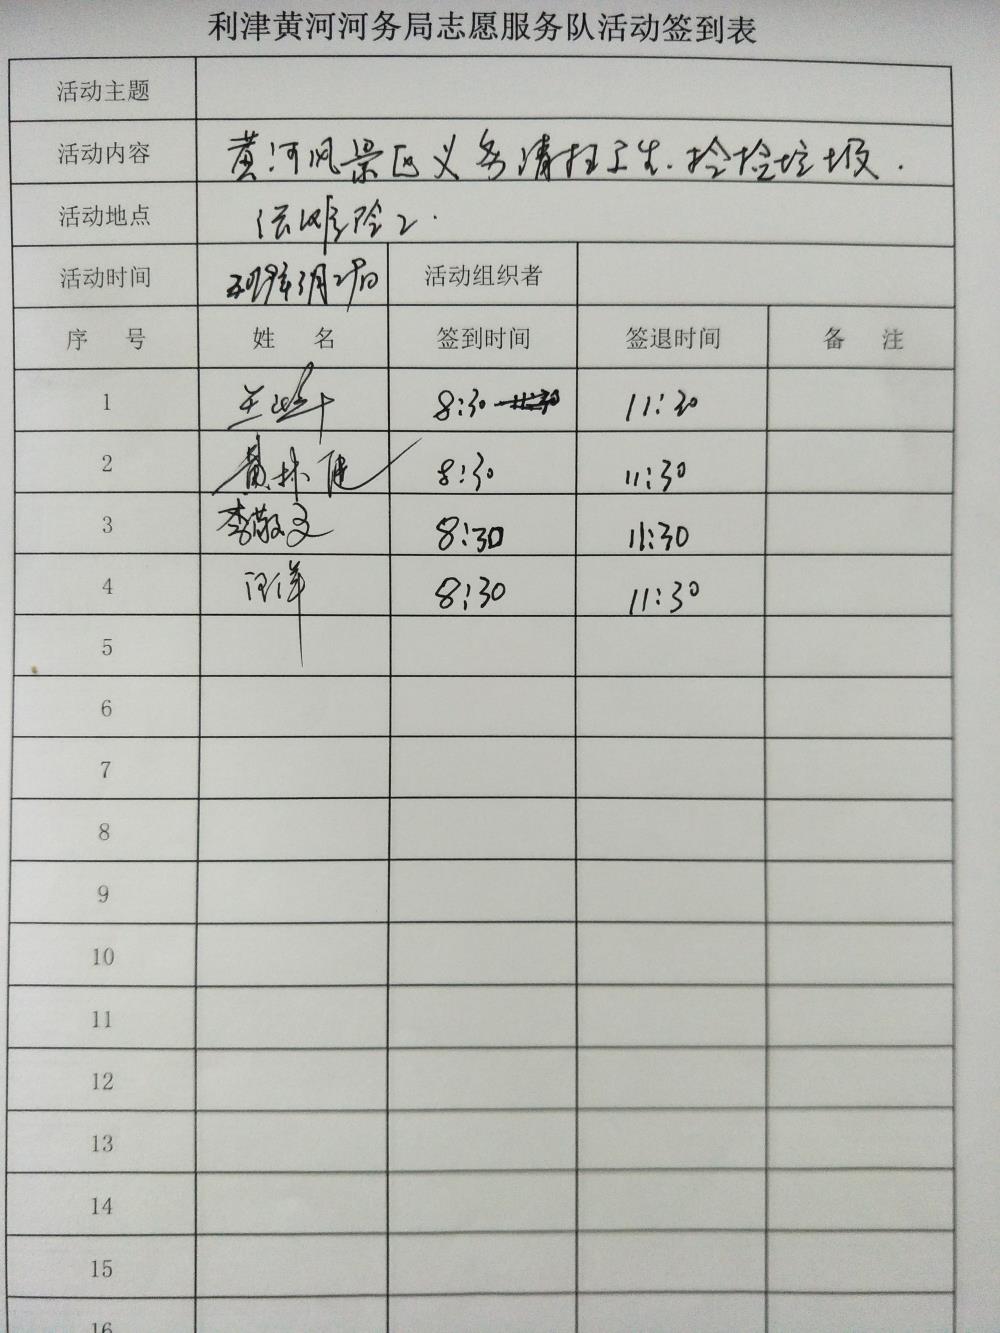 利津黄河河务局志愿服务队活动签到表
活动主题
活动内容 黄河风景区义务清扫卫生.捡捡垃圾.
活动地点 险工.
活动时间 活动组织者
序 号 姓 名 签到时间 签退时间 备 注
1 8:30 11:30
2 黄林健 8:30 11:30
3 李敬文 8:30 11:30
4 8:30 11:30
5
6
7
8
9
10
11
12
13
14
15
16